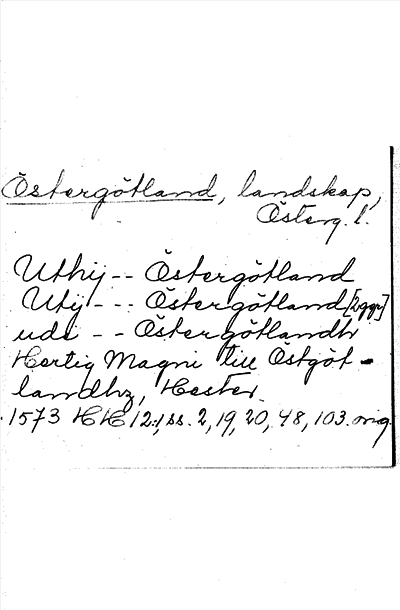 Östergötland, landskap,
Österg. l.
Uthij -- Östergötland
Utij --- Östergötland [2ggr]
udi -- Östergötlandh
Hertig Magni till Östgöt-
landhz, Hester.
1573 HH 12:1, ss. 2, 19, 20, 48, 103. orig.